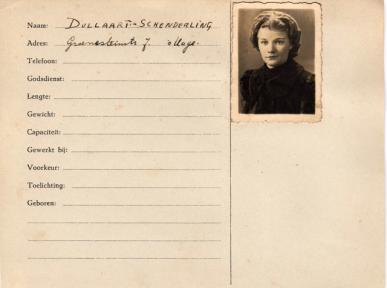 Naam: DULLAART-SCHENDERLING
Adres: 7. 's Hage.
Telefoon:
Godsdienst:
Lengte:
Gewicht:
Capaciteit:
Gewerkt bij:
Voorkeur:
Toelichting:
Geboren: